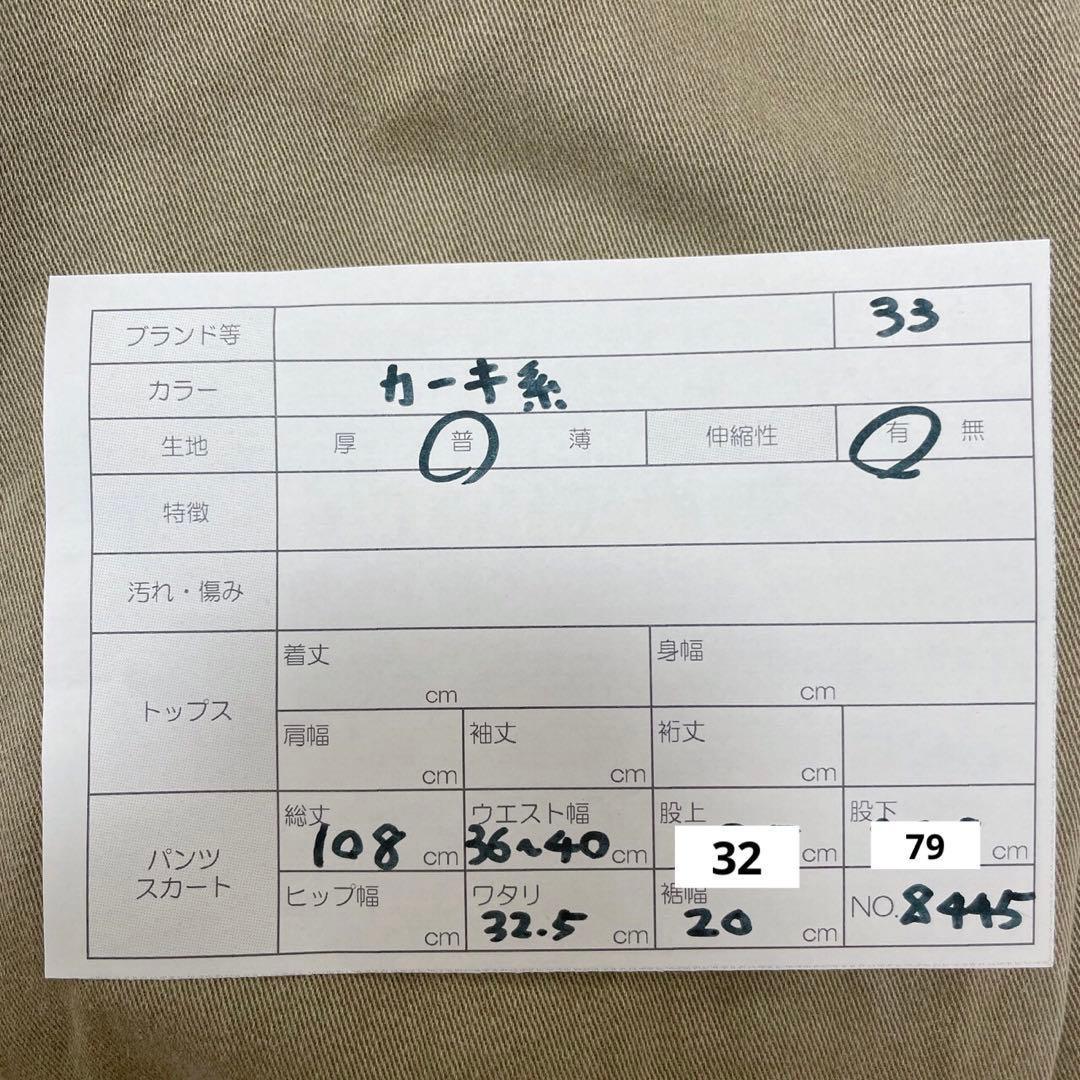 ブランド等 33
カラー カーキ系
生地 厚 普 薄 伸縮性 有 無
特徴
汚れ・傷み
トップス
着丈 cm 身幅 cm
肩幅 cm 袖丈 cm 裄丈 cm
パンツ
スカート
総丈 108 cm ウエスト幅 36~40 cm 股上 32 cm 股下 79 cm
ヒップ幅 cm ワタリ 32.5 cm 裾幅 20 cm NO. 8445